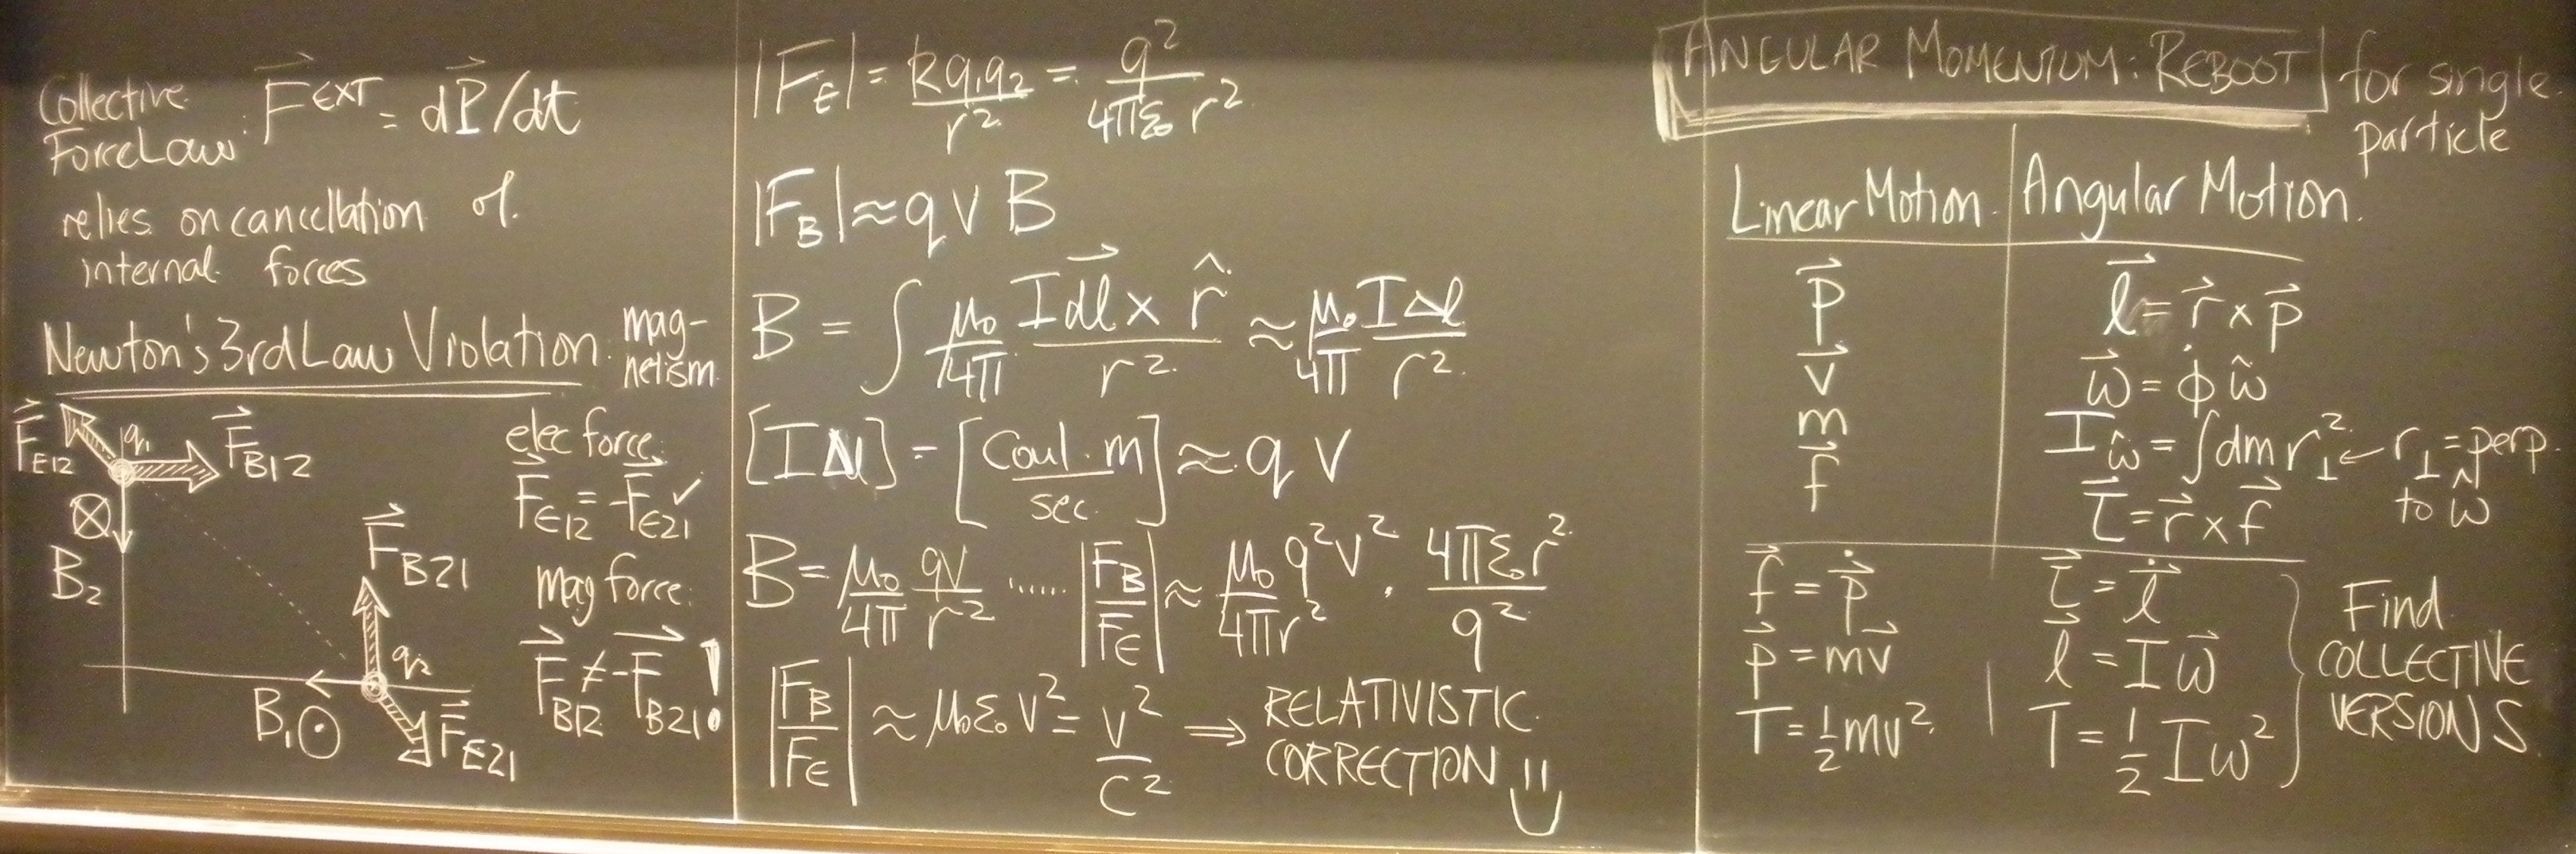 Collective Force Law: F⃗^EXT = dP⃗/dt
relies on cancellation of
internal forces
Newton's 3rd Law Violation: mag-
netism
F⃗_E12 q₁ F⃗_B12
⊗
B₂
F⃗_B21
q₂
B₁ ⊙ F⃗_E21
elec force:
F⃗_E12 = -F⃗_E21 ✓
mag force:
F⃗_B12 ≠ -F⃗_B21 !
|F_E| = kq₁q₂/r² = q²/4πε₀r²
|F_B| ≈ q v B
B = ∫ μ₀/4π I dl⃗ × r̂ / r² ≈ μ₀/4π IΔl/r²
[IΔl] = [Coul·m/sec] ≈ q v
B = μ₀/4π qv/r² ...... |F_B/F_E| ≈ μ₀q²v²/4πr² · 4πε₀r²/q²
|F_B/F_E| ≈ μ₀ε₀v² = v²/c² ⇒ RELATIVISTIC
CORRECTION
ANGULAR MOMENTUM: REBOOT for single
particle
Linear Motion Angular Motion
p⃗ l⃗ = r⃗ × p⃗
v⃗ ω⃗ = φ̇ ω̂
m I_ω̂ = ∫dm r⊥² ← r⊥ = perp
to ω̂
f⃗ τ⃗ = r⃗ × f⃗
f⃗ = ṗ⃗ τ⃗ = l̇⃗
p⃗ = mv⃗ l⃗ = Iω⃗
T = ½mv² T = ½Iω²
Find
COLLECTIVE
VERSIONS